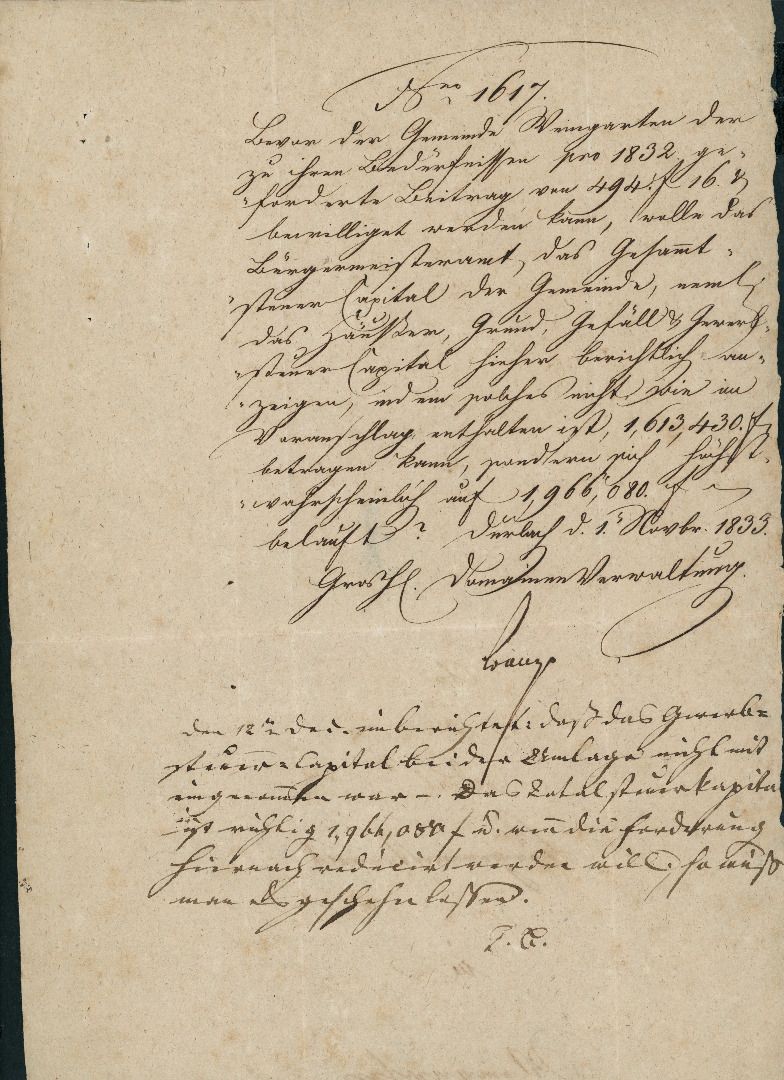 Nro 1617.
Bevor der Gemeinde Weingarten der
zu ihren Bedürfnissen pro 1832 ge-
forderte Beitrag von 494 f 16
bewilliget werden kann, wolle das
Bürgermeisteramt, das Gesammt-
steuer Capital der Gemeinde, neml.
das Häußer, Grund, Gefäll & Gewerb-
steuer Capital hieher berichtlich an-
zeigen, indem solches nicht, wie im
Voranschlag enthalten ist, 1,613,430. f
betragen kann, sondern sich höchst-
wahrscheinlich auf 1,966,080. f
belauft? Durlach d. 1. Novbr. 1833.
Grosh. Domainen Verwaltung.
den 12n Dec. einberichtet: daß das Gewerb=
steuer=Capital bei der Umlage nicht mit
eingenommen war –. Das Totalsteuerkapital
ist richtig 1,966,080 f u. wenn die Forderung
hiernach reducirt werden will, so muß
man es geschehn lassen.